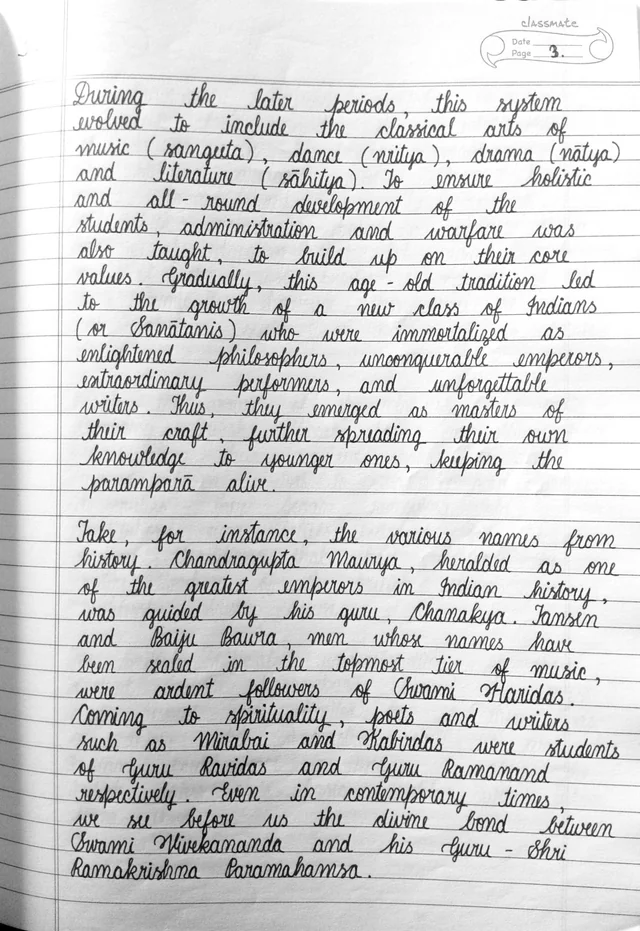 classmate
Date
Page 3.
During the later periods, this system
evolved to include the classical arts of
music (sangeeta), dance (nritya), drama (nātya)
and literature (sāhitya). To ensure holistic
and all-round development of the
students, administration and warfare was
also taught, to build up on their core
values. Gradually, this age-old tradition led
to the growth of a new class of Indians
(or Sanātanis) who were immortalized as
enlightened philosophers, unconquerable emperors,
extraordinary performers, and unforgettable
writers. Thus, they emerged as masters of
their craft, further spreading their own
knowledge to younger ones, keeping the
paramparā alive.
Take, for instance, the various names from
history. Chandragupta Maurya, heralded as one
of the greatest emperors in Indian history,
was guided by his guru, Chanakya. Tansen
and Baiju Bawra, men whose names have
been sealed in the topmost tier of music,
were ardent followers of Swami Haridas.
Coming to spirituality, poets and writers
such as Mirabai and Kabirdas were students
of Guru Ravidas and Guru Ramanand
respectively. Even in contemporary times,
we see before us the divine bond between
Swami Vivekananda and his Guru - Shri
Ramakrishna Paramahamsa.